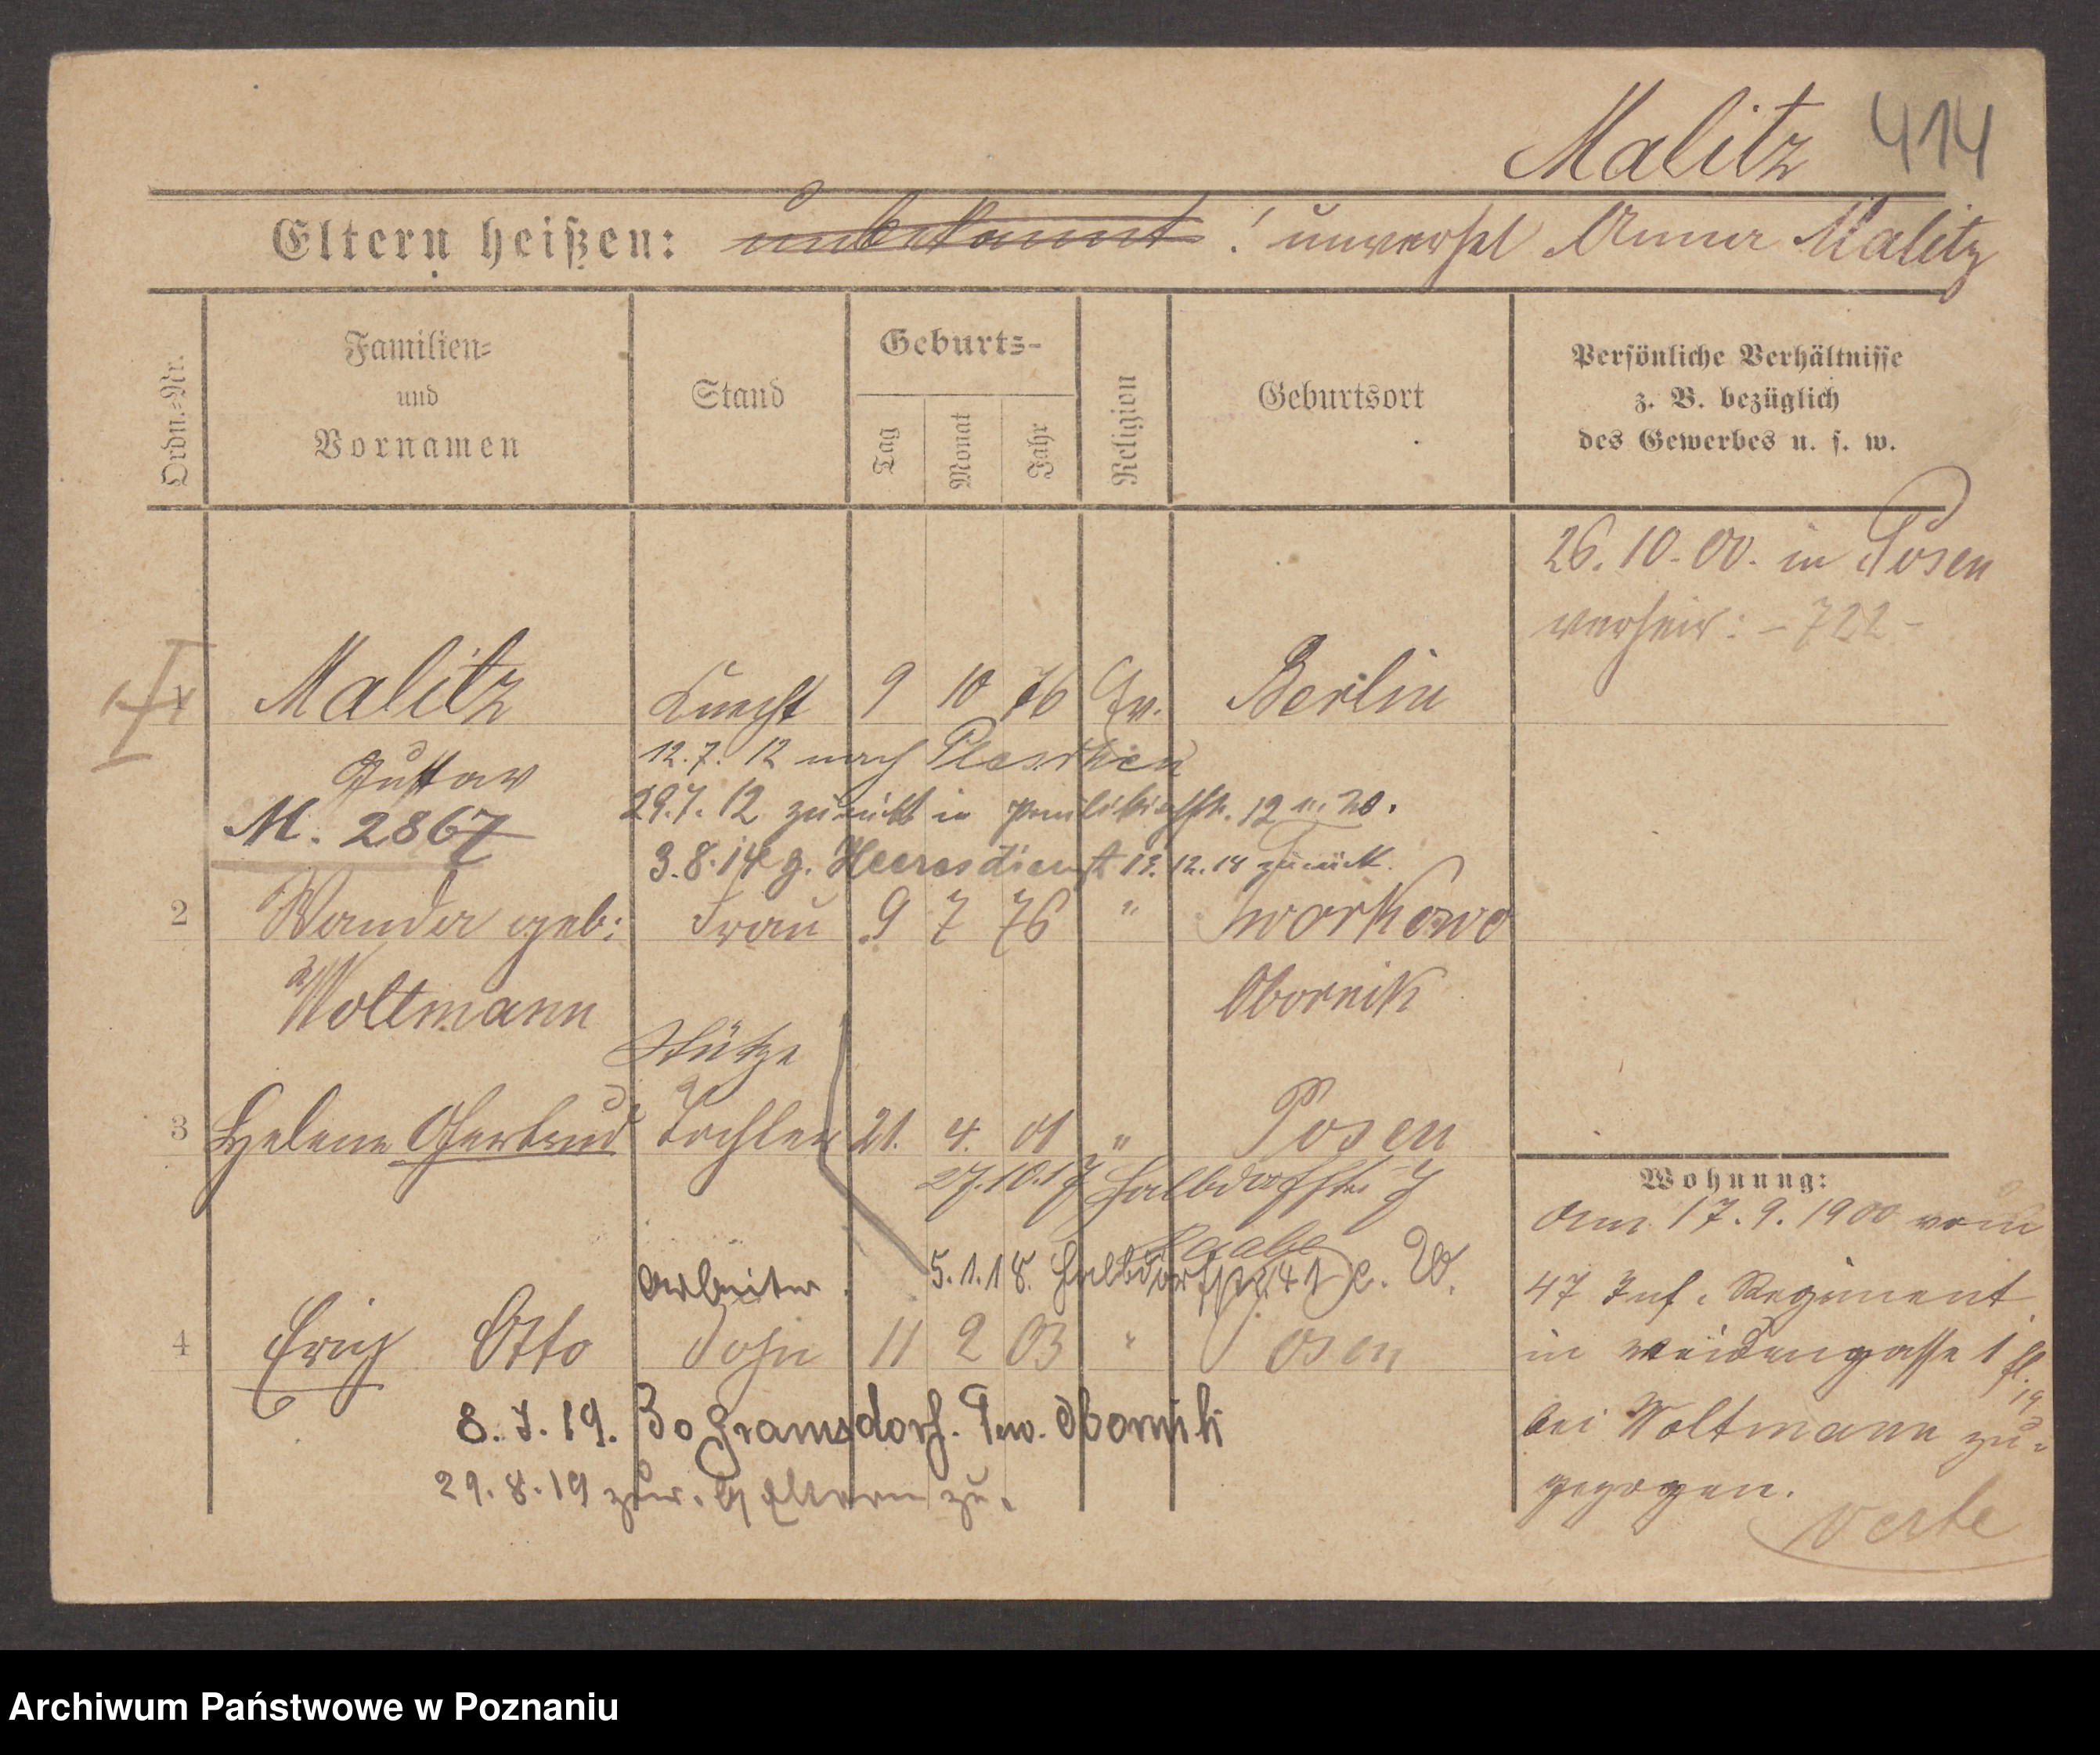 Malitz 414
Eltern heißen: unbekannt ! unverhl Anna Malitz
Ordn.=Nr.
Familien=
und
Vornamen
Stand
Geburts-
Tag
Monat
Jahr
Religion
Geburtsort
Persönliche Verhältnisse
z. B. bezüglich
des Gewerbes u. s. w.
26.10.00. in Posen
verheir: - 722 -
1 Malitz Knecht 9 10 76 Ev. Berlin
Gustav
12.7.12 nach Pleschen
29.7.12 zurück in 12 u. 20.
M. 2867
3.8.14 z. Heeresdienst 12.14 zurück.
2 Wanda geb: Frau 9 7 76 "
Woltmann Obornik
Stütze
3 Helene Gertrud Tochter 21. 4. 01 " Posen
27.10.17 Halbdorfstr. 7
Raabe
Arbeiter. 5.1.18. Halbdorfstr. 41
4 Erich Otto Sohn 11 2 03 " Posen
8.7.19. Bogramsdorf. Obornik
29.8.19 zur. Eltern zu.
Wohnung:
Am 17.9.1900 vom
47 Inf. Regiment
in Weidengasse 1
bei Woltmann zu=
gezogen.
verte
Archiwum Państwowe w Poznaniu